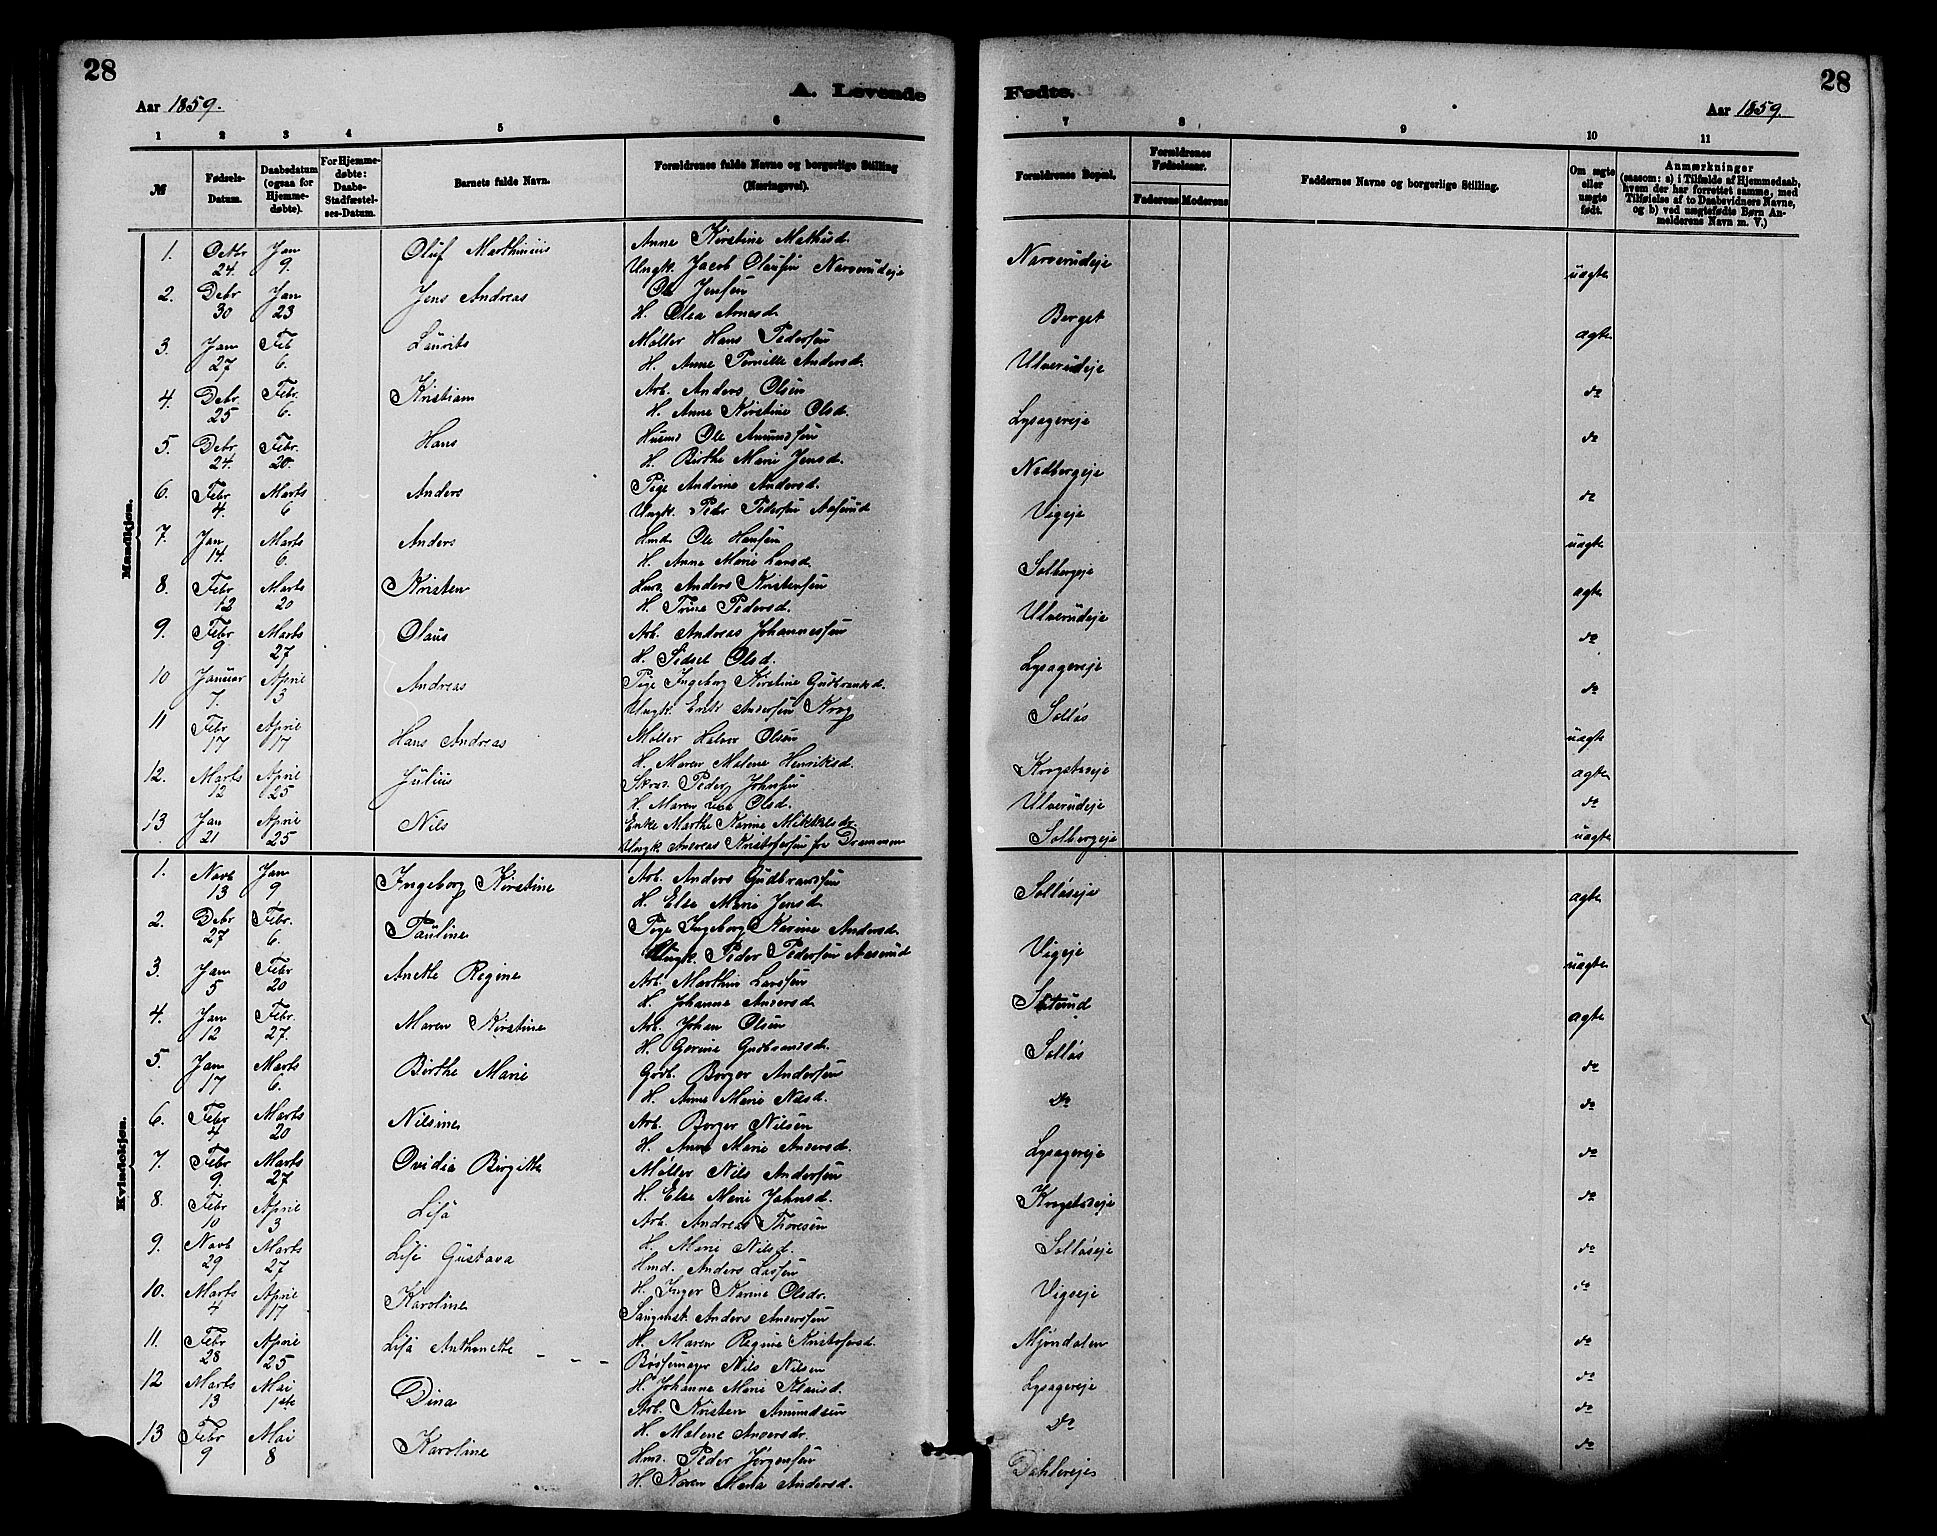 28
28
Aar 1859.
A. Levende
Fødte.
Aar 1859.
1 2 3 4 5 6 7 8 9 10 11
№
Fødsels-Datum.
Daabsdatum (ogsaa for Hjemmedøbte).
For Hjemmedøbte: Daabs-Stadfæstelses-Datum.
Barnets fulde Navn.
Forældrenes fulde Navne og borgerlige Stilling (Næringsvei).
Forældrenes Bopæl.
Forældrenes Fødselsaar.
Faderens Moderens
Faddernes Navne og borgerlige Stilling.
Om ægte eller uægte født.
Anmærkninger
(saasom: a) i Tilfælde af Hjemmedaab, hvem der har forrettet samme, med Tilføielse af to Daabsvidners Navne, og b) ved uægtefødte Børn Anmelderens Navn m. V.)
Mandkjøn.
1. Octbr 24. Jan 9. Oluf Marthinius Anne Kirstine Mathisd. Narverudeje uægte
Ungk. Jacob Olausen Narverudeje
2. Debr 30 Jan 23 Jens Andreas Ole Jensen Berget ægte
H. Olea Arnesd.
3. Jan 27 Feb 6. Laurits Møller Hans Pedersen Ulverudeje
H. Anne Pernille Andersd.
4. Debr 25 Febr. 6. Kristian Arb. Anders Olsen Lysagereje do
H. Anne Kirstine Olsd.
5. Debr 24. Febr. 20. Hans Husmd Ole Amundsen Nedbergeje do
H. Birthe Marie Jensd.
6. Febr 4. Marts 6 Anders Pige Andrine Andersd. Vigeje do
Ungk. Peder Pedersen Aaserud
7. Jan 14. Marts 6. Anders Hmd Ole Hansen Solbergeje uægte
H. Anne Marie Larsd.
8. Febr 12 Marts 20 Kristen Hmd. Anders Kristensen Ulverudeje ægte
H. Trine Pedersd.
9. Febr 9. Marts 27 Olaus Arb. Andreas Johannessen Lysagereje do
H. Sidsel Olsd.
10 Januar 7. April 3 Andreas Pige Ingeborg Kirstine Gudbrandsd. Solløs do
Ungk. Erik Andersen Krog
11 Febr 17 April 17 Hans Andreas Møller Halvor Olsen Krogstadeje uægte
H. Maren Malene Henriksd.
12. Marts 12 April 25 Julius Skrd. Peder Johnsen Ulverudeje ægte
H. Maren Lise Olsd. do
13 Jan 21 April 25 Nils Enke Marthe Karine Mikkelsdr. Solbergeje uægte
Ungk. Andreas Kristofersen fra Drammen
Kvindekjøn.
1. Novb 13 Jan 9 Ingeborg Kirstine Arb. Anders Gudbransen Solløseje ægte
H. Else Marie Jensd.
2. Debr 27 Febr. 6. Pauline Pige Ingeborg Karine Andersd. Vigeje uægte
Ungk. Peder Pedersen Aaserud
3. Jan 5 Febr 20 Anette Regine Arb. Marthin Larssen ægte
H. Johanne Andersd.
4. Jan 12 Febr. 27. Maren Kirstine Arb. Johan Olsen Solløs do
H. Gorine Gudbrandsd.
5. Jan 17 Marts 6. Birthe Marie Grdb. Borger Andersen do do
H. Anne Marie Nilsd.
6. Febr 4 Marts 20 Nilsine Arb. Borger Nilsen Lysagereje do
H. Anne Marie Andersd.
7. Febr 9. Marts 27 Ovidia Birgitte Møller Nils Andersen Krogstadeje do
H. Else Marie Johnsd.
8. Febr 10 April 3 Lisa Arb. Andreas Thoresen Solløseje do
H. Marie Nilsd.
9. Novb 29 Marts 27 Lise Gustava Hmd. Anders Larsen Vigseje do
H. Inger Karine Olsdr.
10. Marts 4 April 17 Karoline Saugmst. Anders Andersen Mjøndalen do
H. Maren Regine Kristofersd.
11. Febr 28 April 25 Lisa Anthonette Bøssemager Nils Nilsen Lysagereje do
H. Johanne Marie Klausd.
12 Marts 13 Mai 1ste Dina Arb. Kristen Amundsen do do
H. Malene Andersdr.
13 Febr 9 Mai 8 Karoline Hmd. Peder Jørgensen Dahlereje do
H. Karen Maria Andersd.